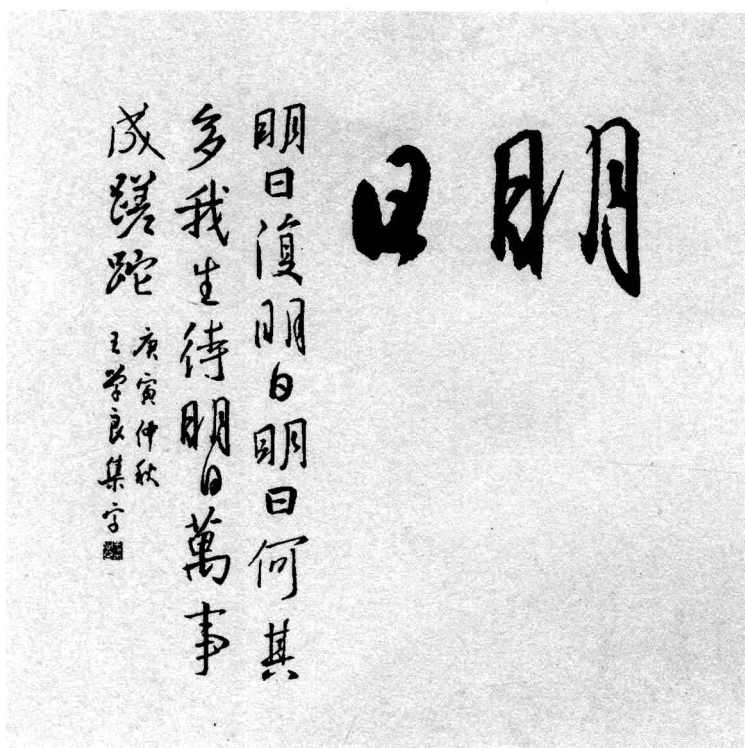 明日
明日復明日明日何其
多我生待明日萬事
成蹉跎
庚寅仲秋
王学良集字